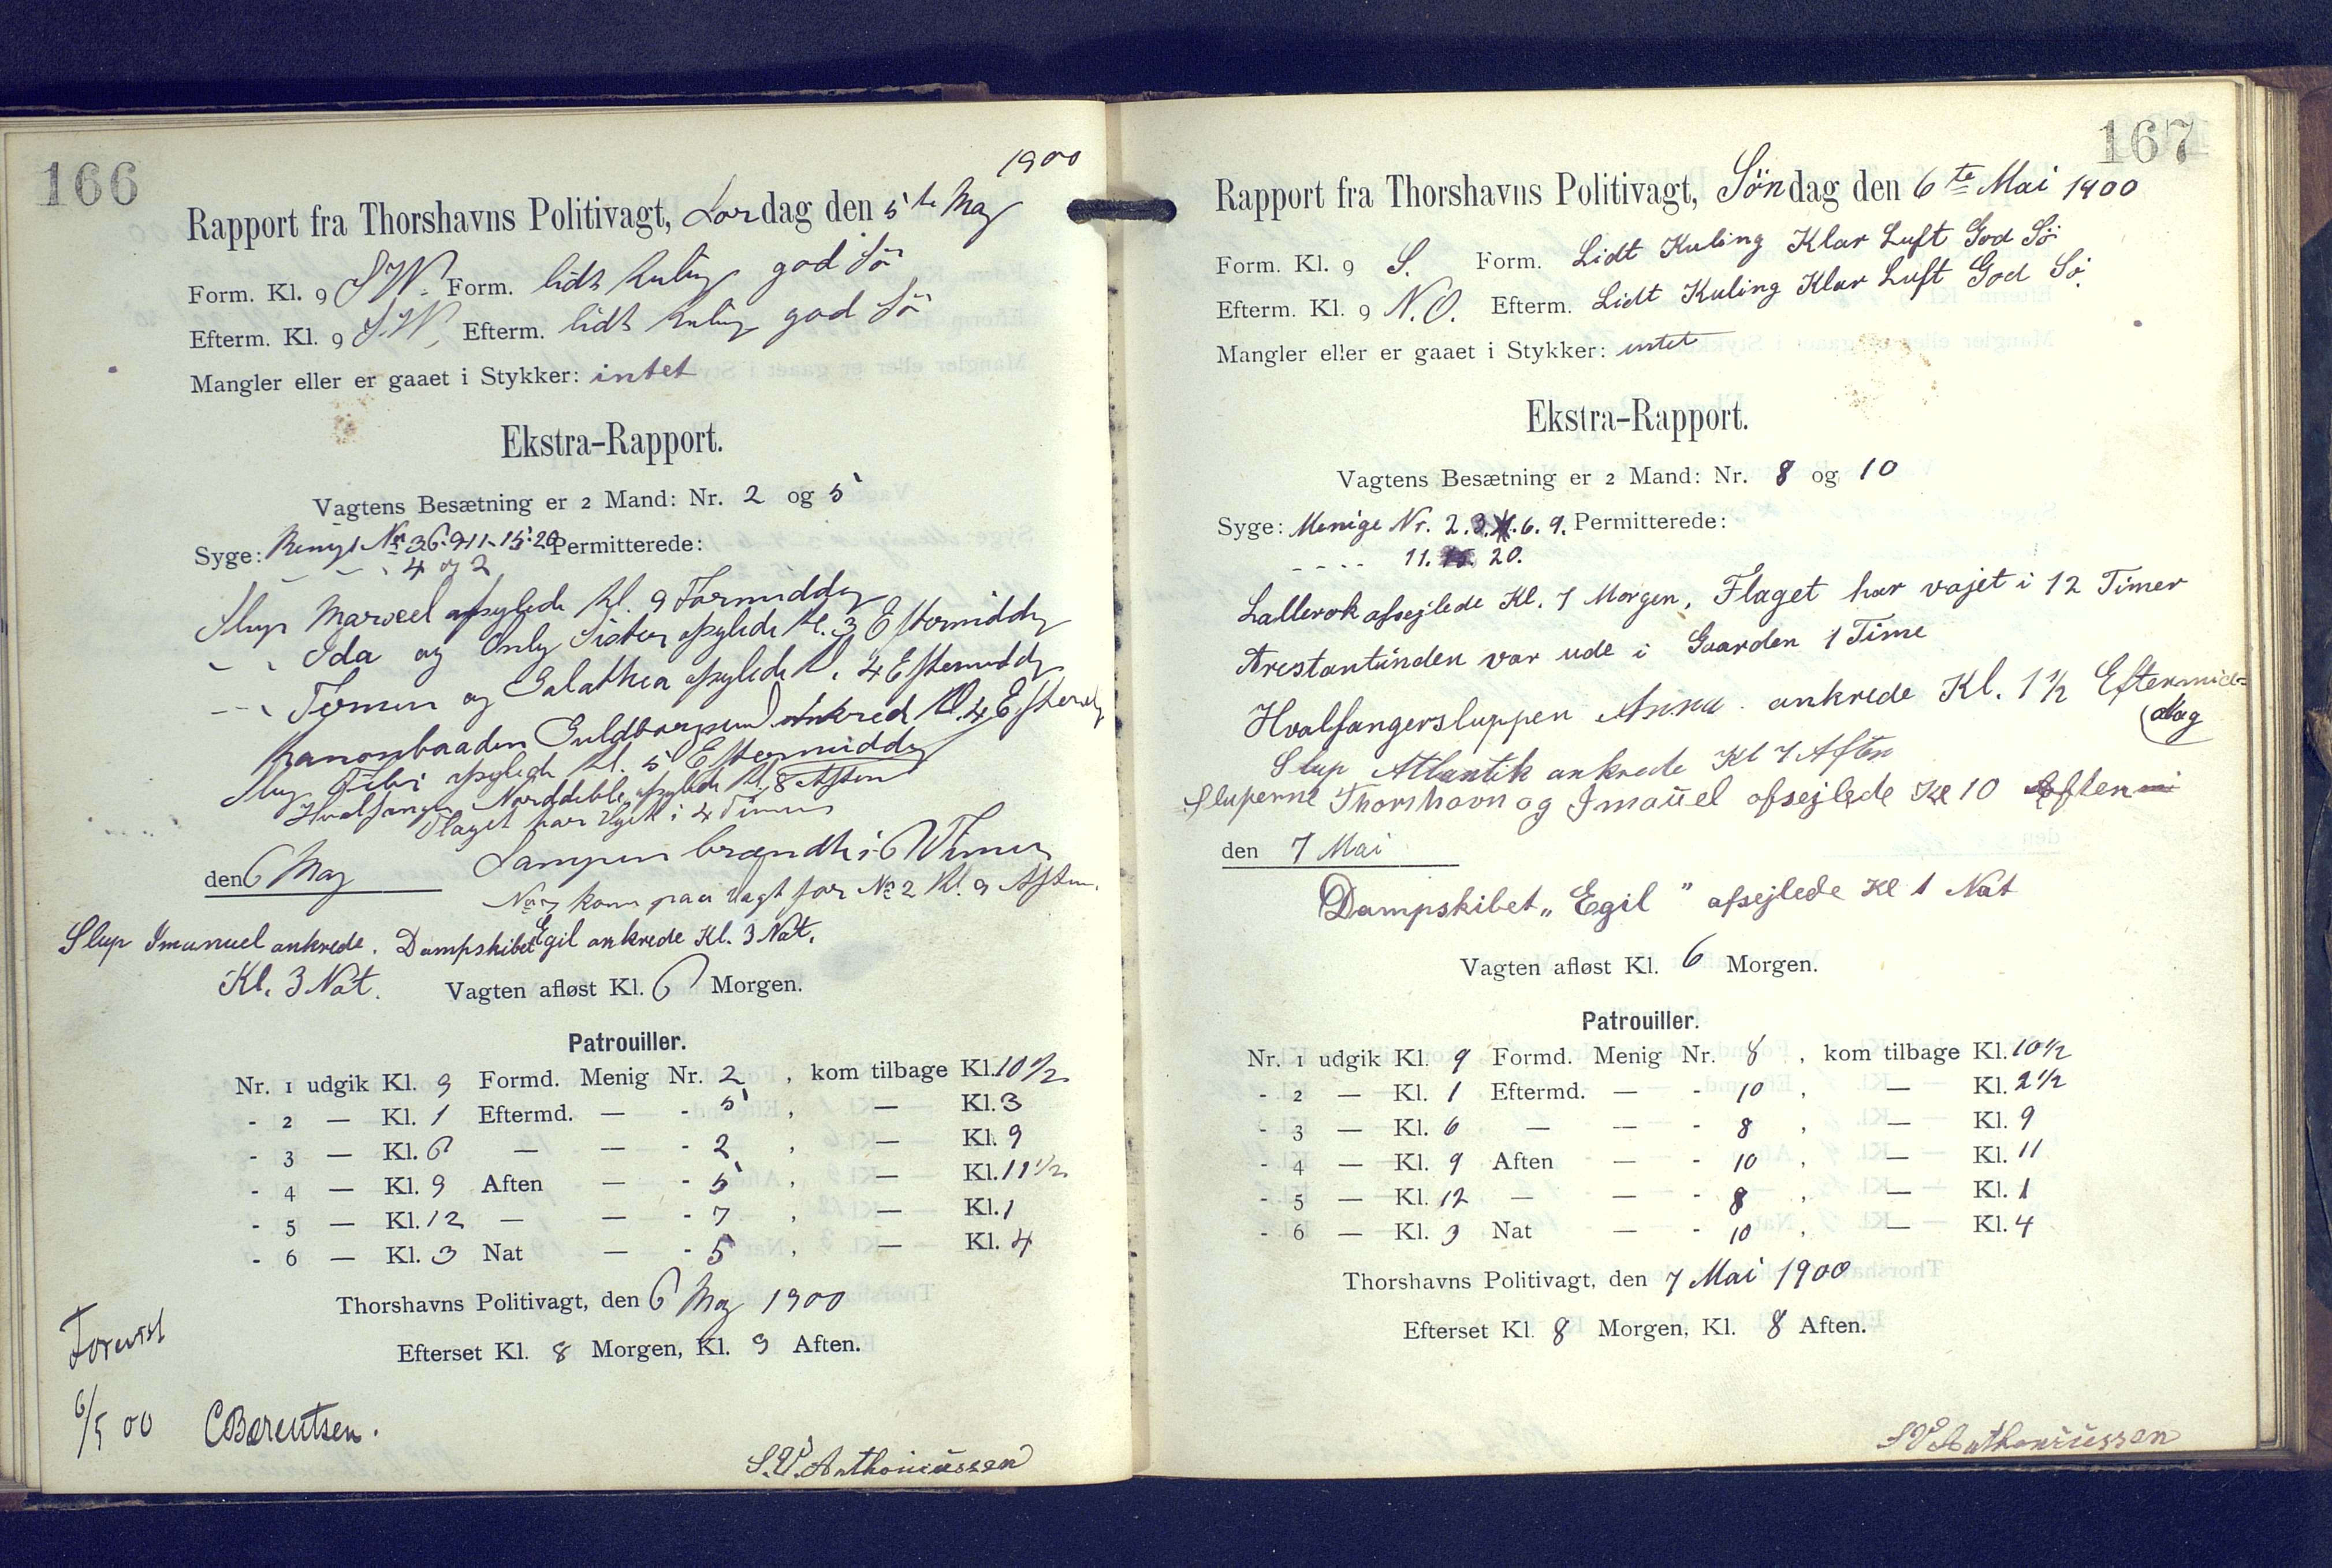 166
1900
Rapport fra Thorshavns Politivagt, Lørdag den 5te Maj
Form. Kl. 9 S.W. Form. lidt Kuling god Sö
Efterm. Kl. 9 S.W. Efterm. lidt Kuling god Sö
Mangler eller er gaaet i Stykker: intet
Ekstra-Rapport.
Vagtens Besætning er 2 Mand: Nr. 2 og 5
Syge: Menige Nr 3.6.9.11.15.20 Permitterede:
4 og 2
Slup Marseel afsejlede Kl. 9 Formiddag
- - Ida og Only Sister afsejlede Kl. 3 Eftermiddag
- - og Galathea afsejlede Kl. 4 Eftermiddag
Kanonbaaden Guldborgsund ankred Kl. 4 Eftermdg
Slup afsejlede Kl. 5 Eftermiddag
Hvalfanger afsejlede Kl. 8 Aften
Flaget har vajet i 4 Timer
den 6 Maj Lampen brændte i 6 Timer
No 7 kom paa Vagt for No 2 Kl. 9 Aften.
Slup Imanuel ankrede. Dampskibet Egil ankrede Kl. 3 Nat.
Kl. 3 Nat. Vagten afløst Kl. 6 Morgen.
Patrouiller.
Nr. 1 udgik Kl. 9 Formd. Menig Nr. 2, kom tilbage Kl. 10 1/2
- 2 — Kl. 1 Eftermd. — - 5, — Kl. 3
- 3 — Kl. 6 — — - 2, — Kl. 9
- 4 — Kl. 9 Aften — - 5, — Kl. 11 1/2
- 5 — Kl. 12 — — - 7, — Kl. 1
- 6 — Kl. 3 Nat — - 5, — Kl. 4
Thorshavns Politivagt, den 6 Maj 1900
Efterset Kl. 8 Morgen, Kl. 9 Aften.
Forevist
6/5 00 CBærentsen.
S.V. Anthoniussen
167
Rapport fra Thorshavns Politivagt, Söndag den 6te Mai 1900
Form. Kl. 9 S. Form. Lidt Kuling Klar Luft God Sö
Efterm. Kl. 9 N.O. Efterm. Lidt Kuling Klar Luft God Sö.
Mangler eller er gaaet i Stykker: intet
Ekstra-Rapport.
Vagtens Besætning er 2 Mand: Nr. 8 og 10
Syge: Menige Nr. 2.3.4.6.9. Permitterede:
- - - - 11. 15. 20.
Lallerok afsejlede Kl. 7 Morgen, Flaget har vajet i 12 Timer
Arestantinden var ude i Gaarden 1 Time
Hvalfangersluppen Anna ankrede Kl. 1 1/2 Eftermid=
dag
Slup Atlantik ankrede Kl 7 Aften
Sluperne Thorshavn og Imaüel afsejlede Kl 10 Aften
den 7 Mai
Dampskibet „Egil" afsejlede Kl 1 Nat
Vagten afløst Kl. 6 Morgen.
Patrouiller.
Nr. 1 udgik Kl. 9 Formd. Menig Nr. 8, kom tilbage Kl. 10 1/2
- 2 — Kl. 1 Eftermd. — - 10, — Kl. 2 1/2
- 3 — Kl. 6 — — - 8, — Kl. 9
- 4 — Kl. 9 Aften — - 10, — Kl. 11
- 5 — Kl. 12 — — - 8, — Kl. 1
- 6 — Kl. 3 Nat — - 10, — Kl. 4
Thorshavns Politivagt, den 7 Mai 1900
Efterset Kl. 8 Morgen, Kl. 8 Aften.
S V Anthoniüssen